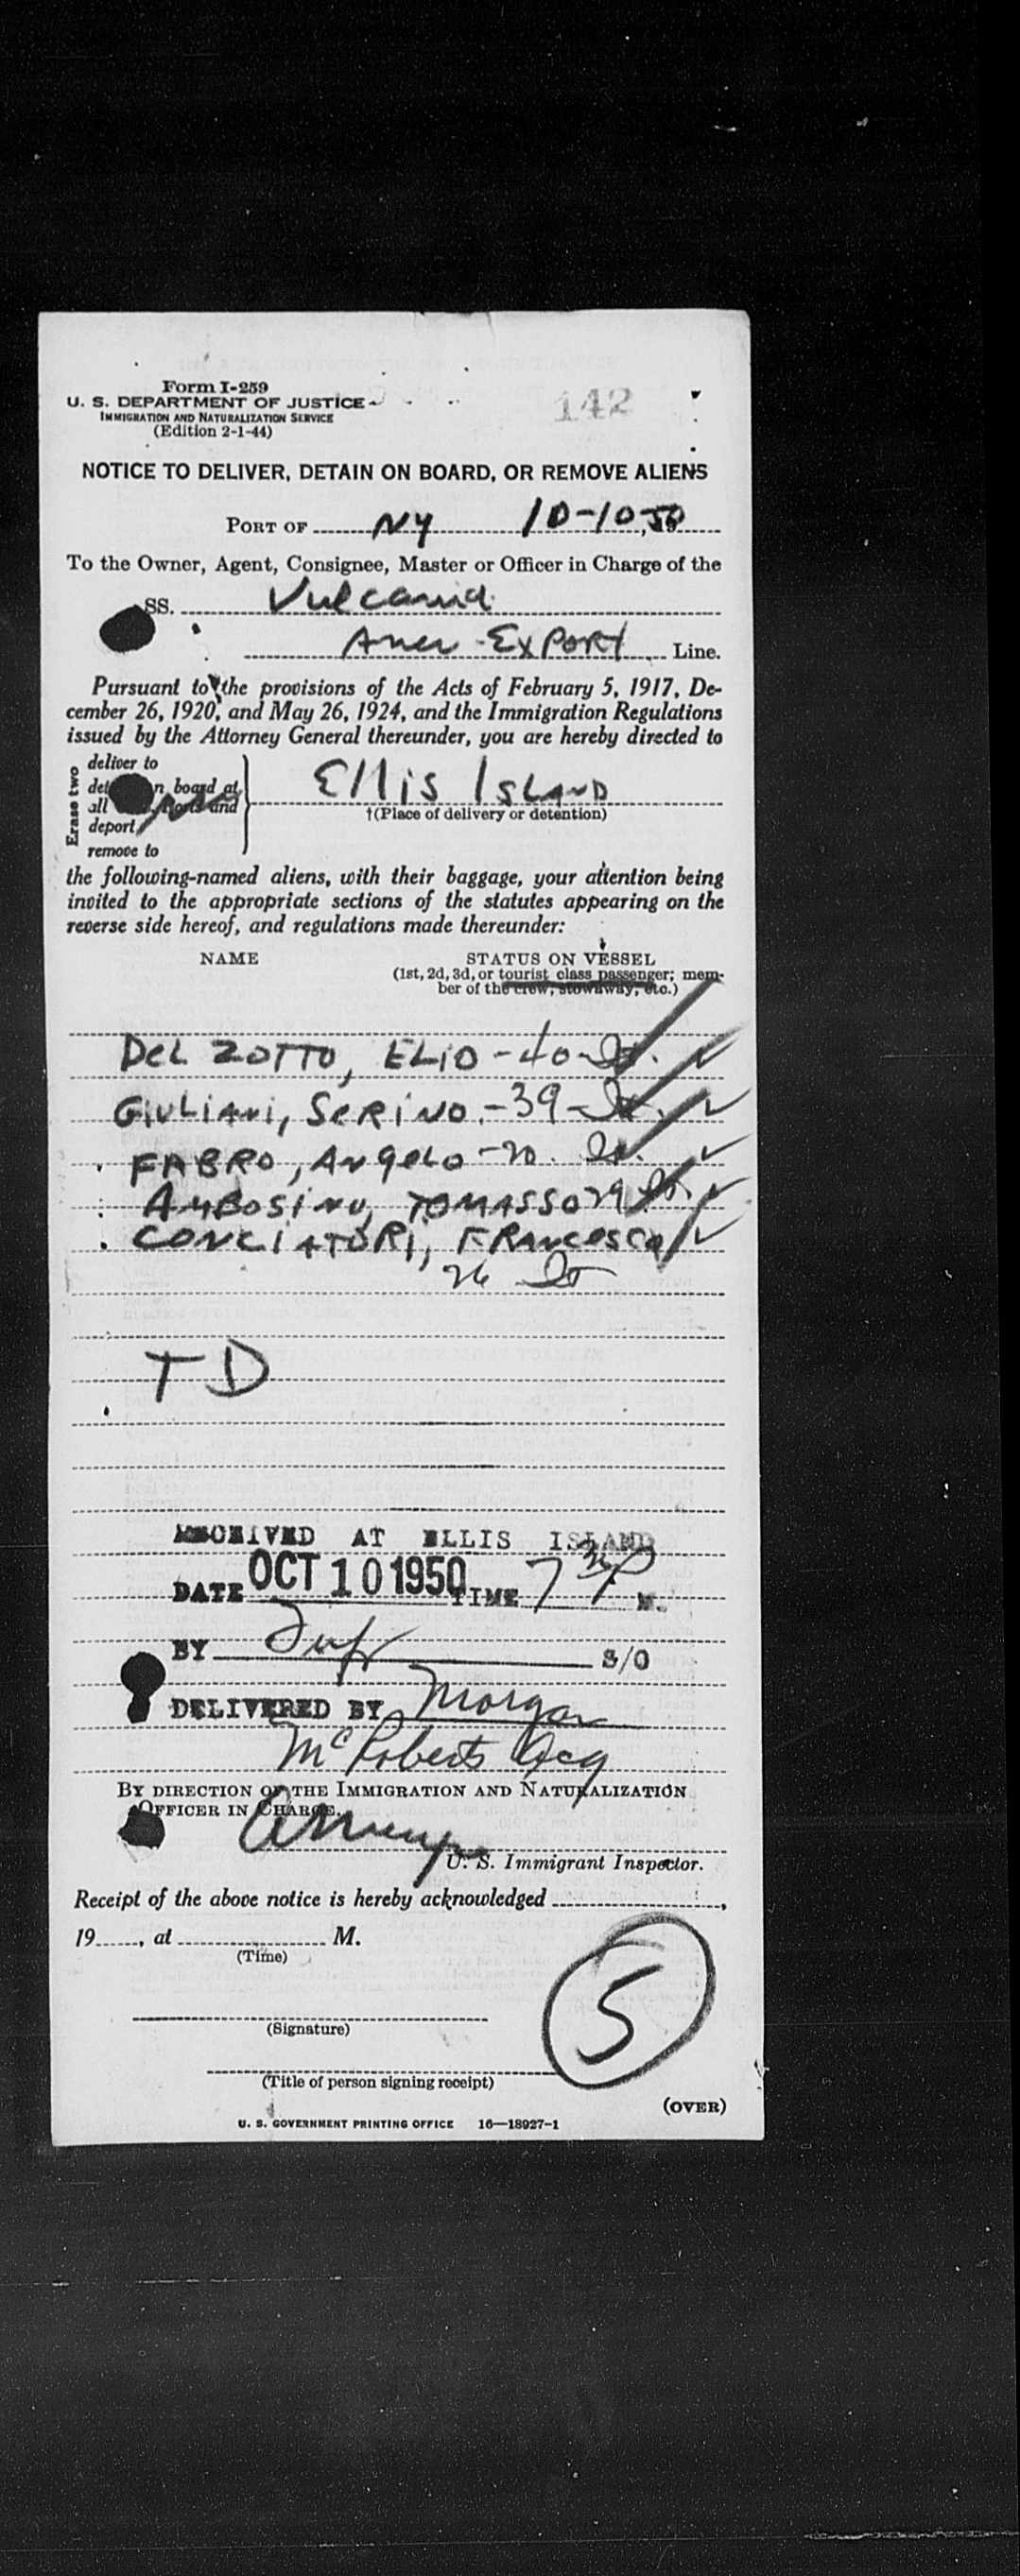 Form I-259
U. S. DEPARTMENT OF JUSTICE
IMMIGRATION AND NATURALIZATION SERVICE
(Edition 2-1-44)
142
NOTICE TO DELIVER, DETAIN ON BOARD, OR REMOVE ALIENS
PORT OF NY 10-10, 50
To the Owner, Agent, Consignee, Master or Officer in Charge of the
SS. Vulcania
Amer Export Line.
Pursuant to the provisions of the Acts of February 5, 1917, De-
cember 26, 1920, and May 26, 1924, and the Immigration Regulations
issued by the Attorney General thereunder, you are hereby directed to
Erase two
deliver to
board at
all and
deport
remove to
Ellis Island
†(Place of delivery or detention)
the following-named aliens, with their baggage, your attention being
invited to the appropriate sections of the statutes appearing on the
reverse side hereof, and regulations made thereunder:
NAME
STATUS ON VESSEL
(1st, 2d, 3d, or tourist class passenger; mem-
ber of the crew, stowaway, etc.)
DEL ZOTTO, ELIO - 40 - It.
GIULIANI, SERINO. - 39 - It.
FABRO, ANGELO - 20. It.
AMBOSINO, TOMASSO 29 It.
CONCIATORI, FRANCESCO
26 It
TD
RECEIVED AT ELLIS ISLAND
DATE OCT 10 1950 TIME 7 30 P M.
BY S/O
DELIVERED BY Morgan
McRoberts Acg
BY DIRECTION OF THE IMMIGRATION AND NATURALIZATION
OFFICER IN CHARGE.
U. S. Immigrant Inspector.
Receipt of the above notice is hereby acknowledged ,
19 , at M.
(Time)
(Signature)
5
(Title of person signing receipt)
(OVER)
U. S. GOVERNMENT PRINTING OFFICE 16—18927-1